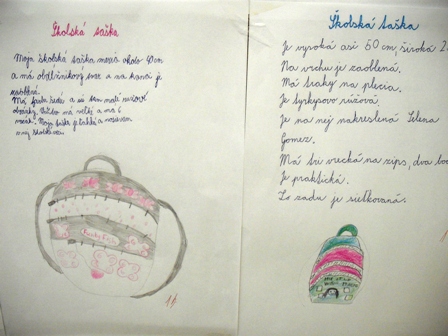 Školská taška
Moja školská taška meria okolo
a má obdĺžnikový tvar a na hornej je
zaoblená.
Má farbu šedú a sú tam malé ružové
obrázky.
Moja taška je ľahká a nosievam
Školská taška
Je vysoká asi 50 cm, široká 2
Na vrchu je zaoblená.
Má traky na plecia.
Je tyrkysovo ružová.
Je na nej nakreslená Selena
Gomez.
Má tri vrecká na zips, dva bo
Je praktická.
Zo zadu je sieťkovaná.